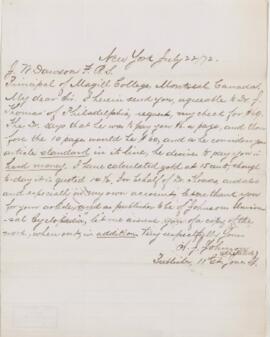 New York July 22/72.
J. W. Dawson F.R.S.
Principal of Magill College, Montreal Canada,
My dear Sir. I herein send you, agreeable to Dr. J.
Thomas of Philadelphia, request, my check for $69.
The Dr. says that he was to pay you $6. a page, and
for the 10 page would be $60, and as he considers your
article standard in its line, he desires to pay you in
hard money. I have calculated gold at 15 cents, though
to day it is quoted 14 3/8. In behalf of Dr. Thomas
and especially on my own account I thank you
for your article, and as publisher to be of Johnsons Univer-
sal Cyclopedia, let me assure you of a copy of the
work, when out, in addition. Very respectfully Yours
A. J. Johnson
Publisher, 11 Great Jones St.